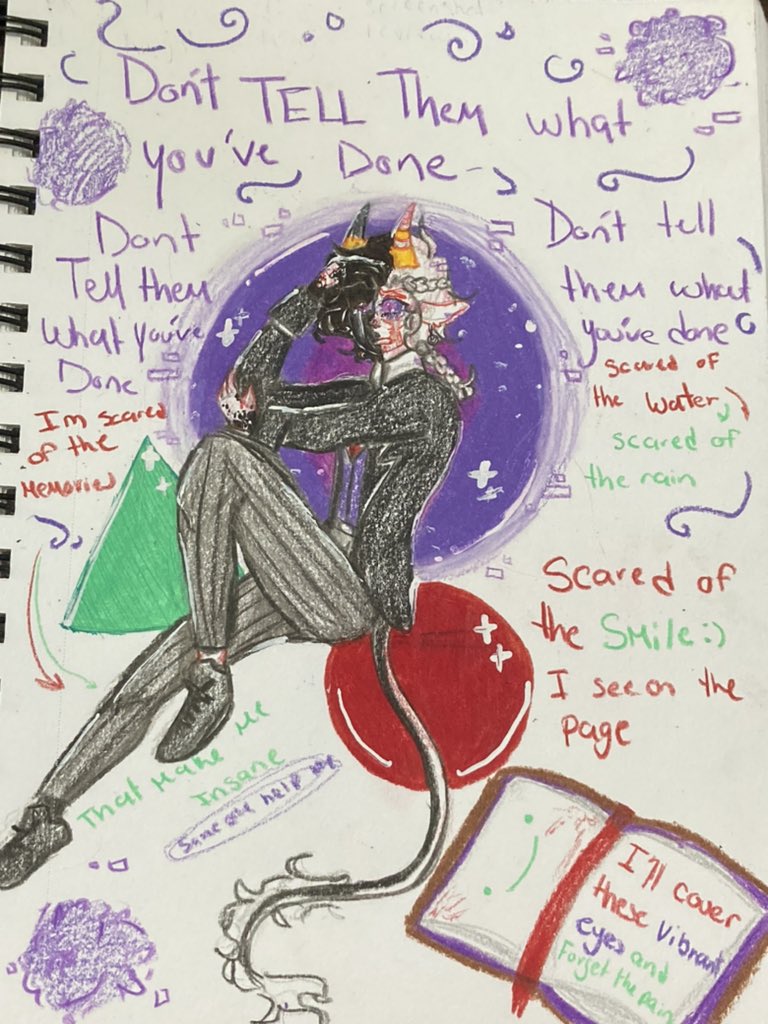 Don't TELL Them what
you've Done
Dont
Tell them
what you've
Done
I'm scared
of the
Memories
Don't tell
them what
you've done
scared of
the water,
scared of
the rain
Scared of
the SMile:)
I see on the
page
That Make Me
Insane
Someone help me
:)
I'll cover
these Vibrant
eyes and
Forget the pain